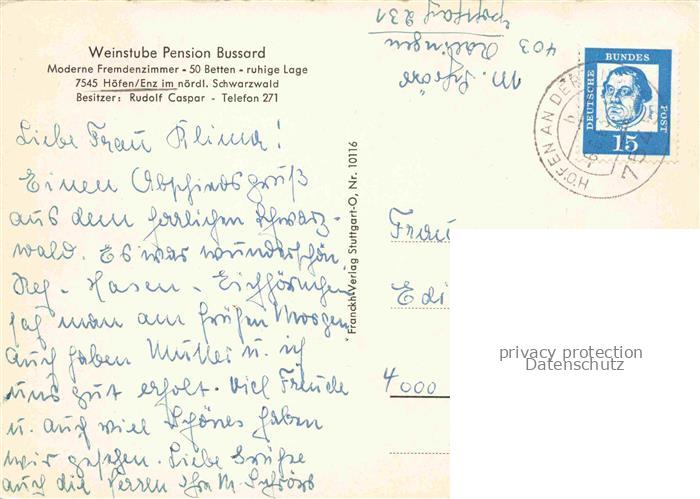 Weinstube Pension Bussard
Moderne Fremdenzimmer - 50 Betten - ruhige Lage
7545 Höfen/Enz im nördl. Schwarzwald
Besitzer: Rudolf Caspar - Telefon 271
Liebe Frau Klima!
Einen Abschiedsgruß
aus dem herrlichen Schwarz-
wald. Es war wunderschön.
Reh - Hasen - Eichhörnchen
sah man am frühen Morgen
auch haben Mutter u. ich
uns gut erholt. Viel Freude
u. auch viel Schönes haben
wir gesehen. Liebe Grüße
auch die Herren Ihre M. Schröds
Franckh-Verlag Stuttgart-O, Nr. 10116
M.
403 Ratingen
Postfach 231
HÖFEN AN DER
754
DEUTSCHE BUNDESPOST
15
Frau
Edi
4000
privacy protection
Datenschutz